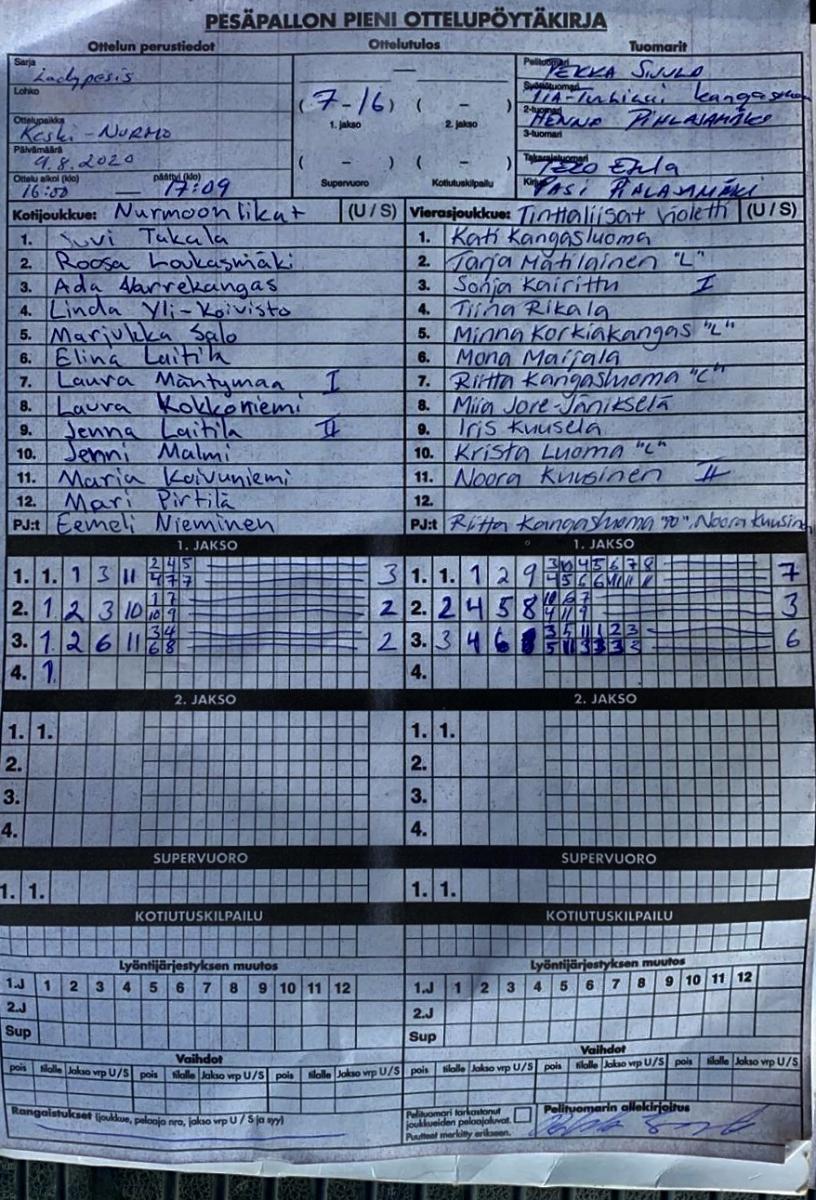 PESÄPALLON PIENI OTTELUPÖYTÄKIRJA
Ottelun perustiedot Ottelutulos Tuomarit
Sarja Ladypesis
Lohko
Ottelupaikka Keski-Nurmo
Päivämäärä 9.8.2020
Ottelu alkoi (klo) päättyi (klo)
16:00 — 17:09
—
(7-16) ( – )
1. jakso 2. jakso
( – ) ( – )
Supervuoro Kotiutuskilpailu
Pelituomari PEKKA
Syöttötuomari
2-tuomari HENNA PIHLAJAMÄKI
3-tuomari
Takarajatuomari
Kirjuri PASI PIHLAJAMÄKI
Kotijoukkue: Nurmoon likat (U / S)
1. Suvi Takala
2. Roosa Loukasmäki
3. Ada Narrekangas
4. Linda Yli-Koivisto
5. Marjukka Salo
6. Elina Laitila
7. Laura Mäntymaa I
8. Laura Kokkoniemi
9. Jenna Laitila II
10. Jenni Malmi
11. Maria Koivuniemi
12. Mari Pirtilä
PJ:t Eemeli Nieminen
Vierasjoukkue: Tinttaliisat Violetti (U / S)
1. Kati Kangasluoma
2. Tarja Mätiläinen "L"
3. Sonja Kairittu I
4. Tiina Rikala
5. Minna Korkiakangas "L"
6. Mona Marjala
7. Riitta Kangasluoma "C"
8. Miia Jore-Jänikselä
9. Iris Kuusela
10. Krista Luoma "L"
11. Noora Kuusinen II
12.
PJ:t Riitta Kangasluoma , Noora Kuusinen
1. JAKSO
1. 1. 1 3 11 3
2 4 5
4 7 7
2. 1 2 3 10 2
1 7
10 9
3. 1. 2 6 11 2
3 4
6 8
4. 1.
1. JAKSO
1. 1. 1 2 9 7
3 10 4 5 6 7 8
4 5 6 6 11 11 11
2. 2 4 5 8 3
10 6 7
4 11 9
3. 3 4 6 6
3 5 11 1 2 3
5 11 3 3 3 3
4.
2. JAKSO
1. 1.
2.
3.
4.
2. JAKSO
1. 1.
2.
3.
4.
SUPERVUORO SUPERVUORO
1. 1. 1. 1.
KOTIUTUSKILPAILU KOTIUTUSKILPAILU
Lyöntijärjestyksen muutos Lyöntijärjestyksen muutos
1.J 1 2 3 4 5 6 7 8 9 10 11 12 1.J 1 2 3 4 5 6 7 8 9 10 11 12
2.J 2.J
Sup Sup
Vaihdot Vaihdot
pois tilalle Jakso vrp U/S pois tilalle Jakso vrp U/S pois tilalle Jakso vrp U/S pois tilalle Jakso vrp U/S pois tilalle Jakso vrp U/S pois tilalle Jakso vrp U/S
Rangaistukset (joukkue, pelaaja nro, jakso vrp U / S ja syy)
Pelituomari tarkastanut
joukkueiden pelaajaluvat.
Puutteet merkitty erikseen.
Pelituomarin allekirjoitus